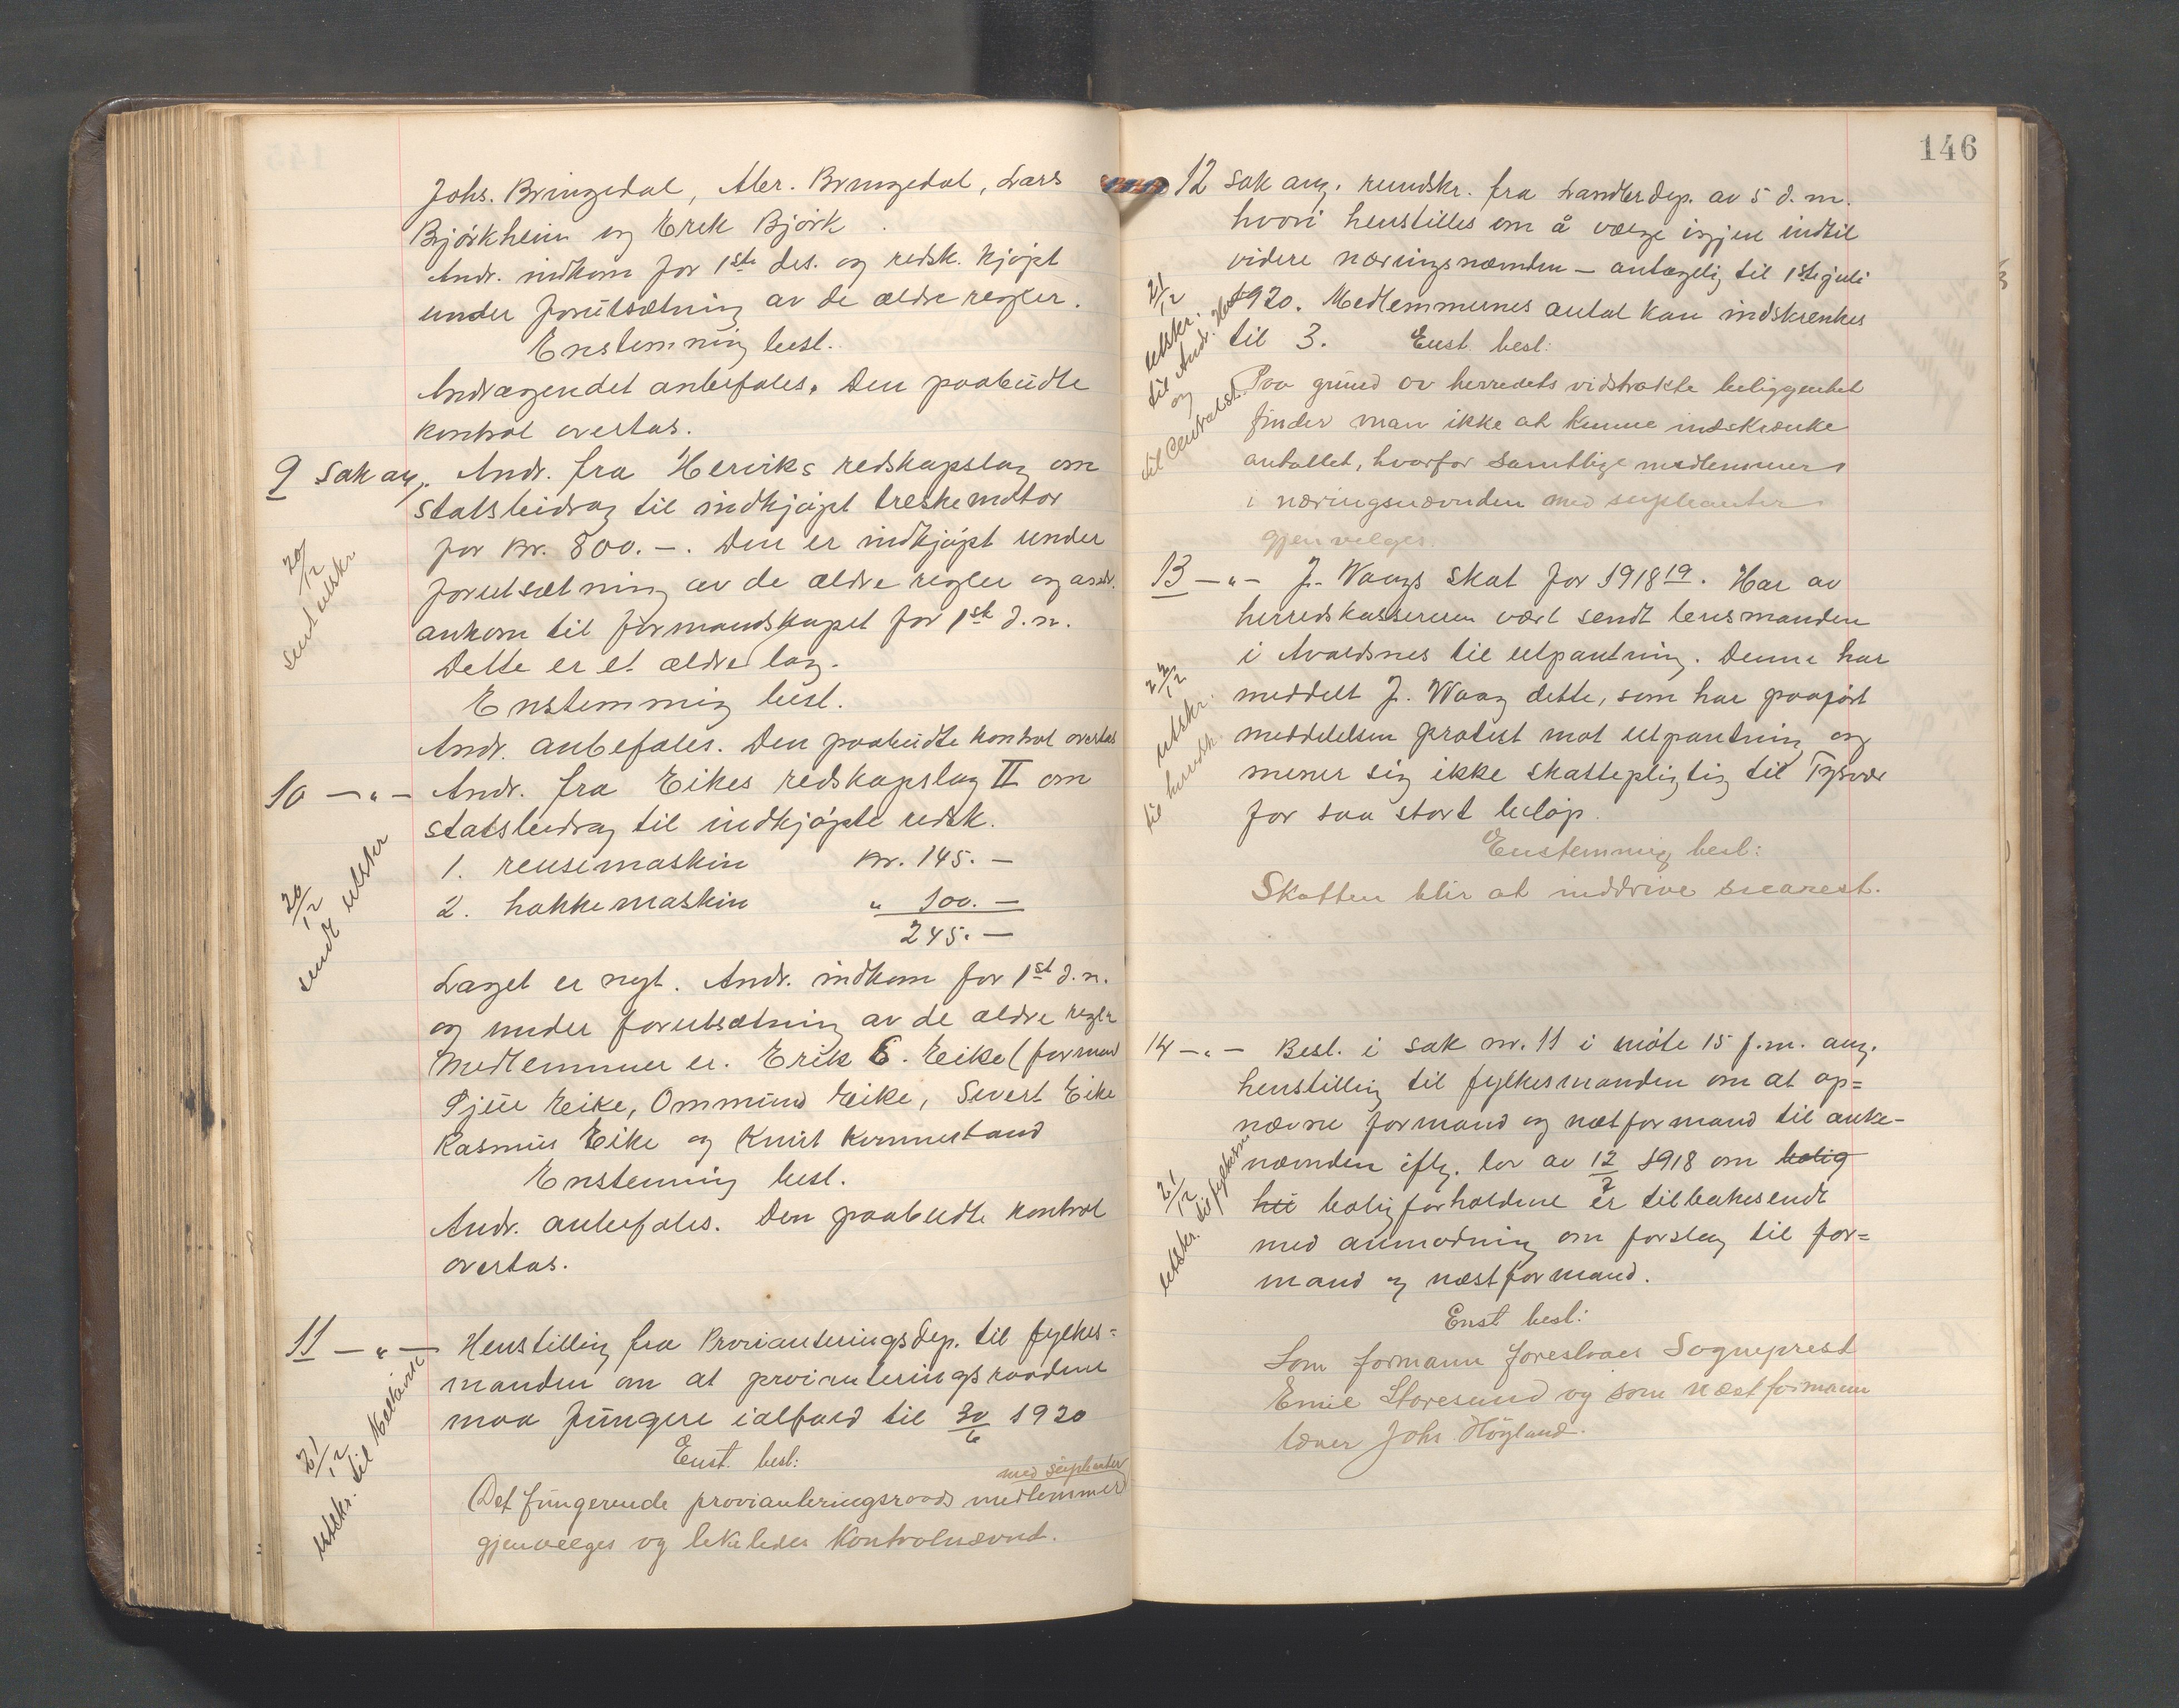 Johs. Bringedal, Aler. Bringedal, Lars
Björkheim og Erik Björk.
Andr. indkom for 1ste des. og redsk. kjöpt
under forutsætning av de ældre regler.
Enstemmig besl.
Andragendet anbefales. Den paabudte
kontrol overtas.
9 Sak ang. Andr. fra Herviks redskapslag om
statsbidrag til indkjöpt treskemotor
for kr. 800.-. Den er indkjöpt under
forutsætning av de ældre regler og andr.
ankom til formandskapet for 1st d.m.
Dette er et ældre lag.
Enstemmig besl.
Andr. anbefales. Den paabudte kontrol overtas
20/12
sendt utskr
10 —„— Andr. fra Eikes redskapslag II om
statsbidrag til indkjöpte redsk.
1. rensemaskin kr. 145.-
2. hakkemaskin „ 100.-
245.-
20/12
sendt utskr
Laget er nyt. Andr. indkom for 1st d.m.
og under forutsætning av de ældre regler
Medlemmer er. Erik E. Eike (formand
Gjeue Eike, Ommund Eike, Sivert Eike
Rasmus Eike og Knut
Enstemmig besl.
Andr. anbefales. Den paabudte kontrol
overtas.
11 —„— Henstilling fra Provianteringsdep. til fylkes=
manden om at provianteringsraadene
maa fungere ialfald til 30/6 1920
Enst. besl:
med supleanter
Det fungerende provianteringsraads medlemmer
gjenvelges og likeledes Kontrolnævnd.
21/12
utskr. til
146
12 Sak ang. rundskr. fra Landbr dep. av 5 d.m.
hvori henstilles om å vælge igjen indtil
videre næringsnæmnden – antagelig til 1ste juli
1920. Medlemmernes antal kan indskrenkes
til 3. Enst. besl:
Paa grund av herredets vidstrakte beliggenhet
finder man ikke at kunne indskrænke
antallet, hvorfor samtlige medlemmer
i næringsnævnden med supleanter
gjenvelges.
21/12
utskr.
til Andr.
og
til Centralst.
13 —„— J. Waags skat for 1918 19. Har av
herredskassereren vært sendt lensmanden
i Avaldsnes til utpantning. Denne har
meddelt J. Waag dette, som har paaført
meddelelsen protest mot utpantning og
mener sig ikke skattepligtig til Tysvær
for saa stort belöp.
Enstemmig besl:
Skatten blir at inddrive snarest.
22/12
utskr.
til herredsk.
14 —„— Besl. i sak nr. 11 i möte 15 f.m. ang.
henstilling til fylkesmanden om at op=
nævne formand og næstformand til anke-
nævnden iflg. lov av 12/7 1918 om bolig
hu boligforholdene er tilbakesendt
med anmodning om forslag til for=
mand og næstformand.
Enst besl:
Som formann foreslaaes Sogneprest
Emil Storesund og som næstformann
lærer Johs Höyland.
21/12
utskr. til fylkesm.